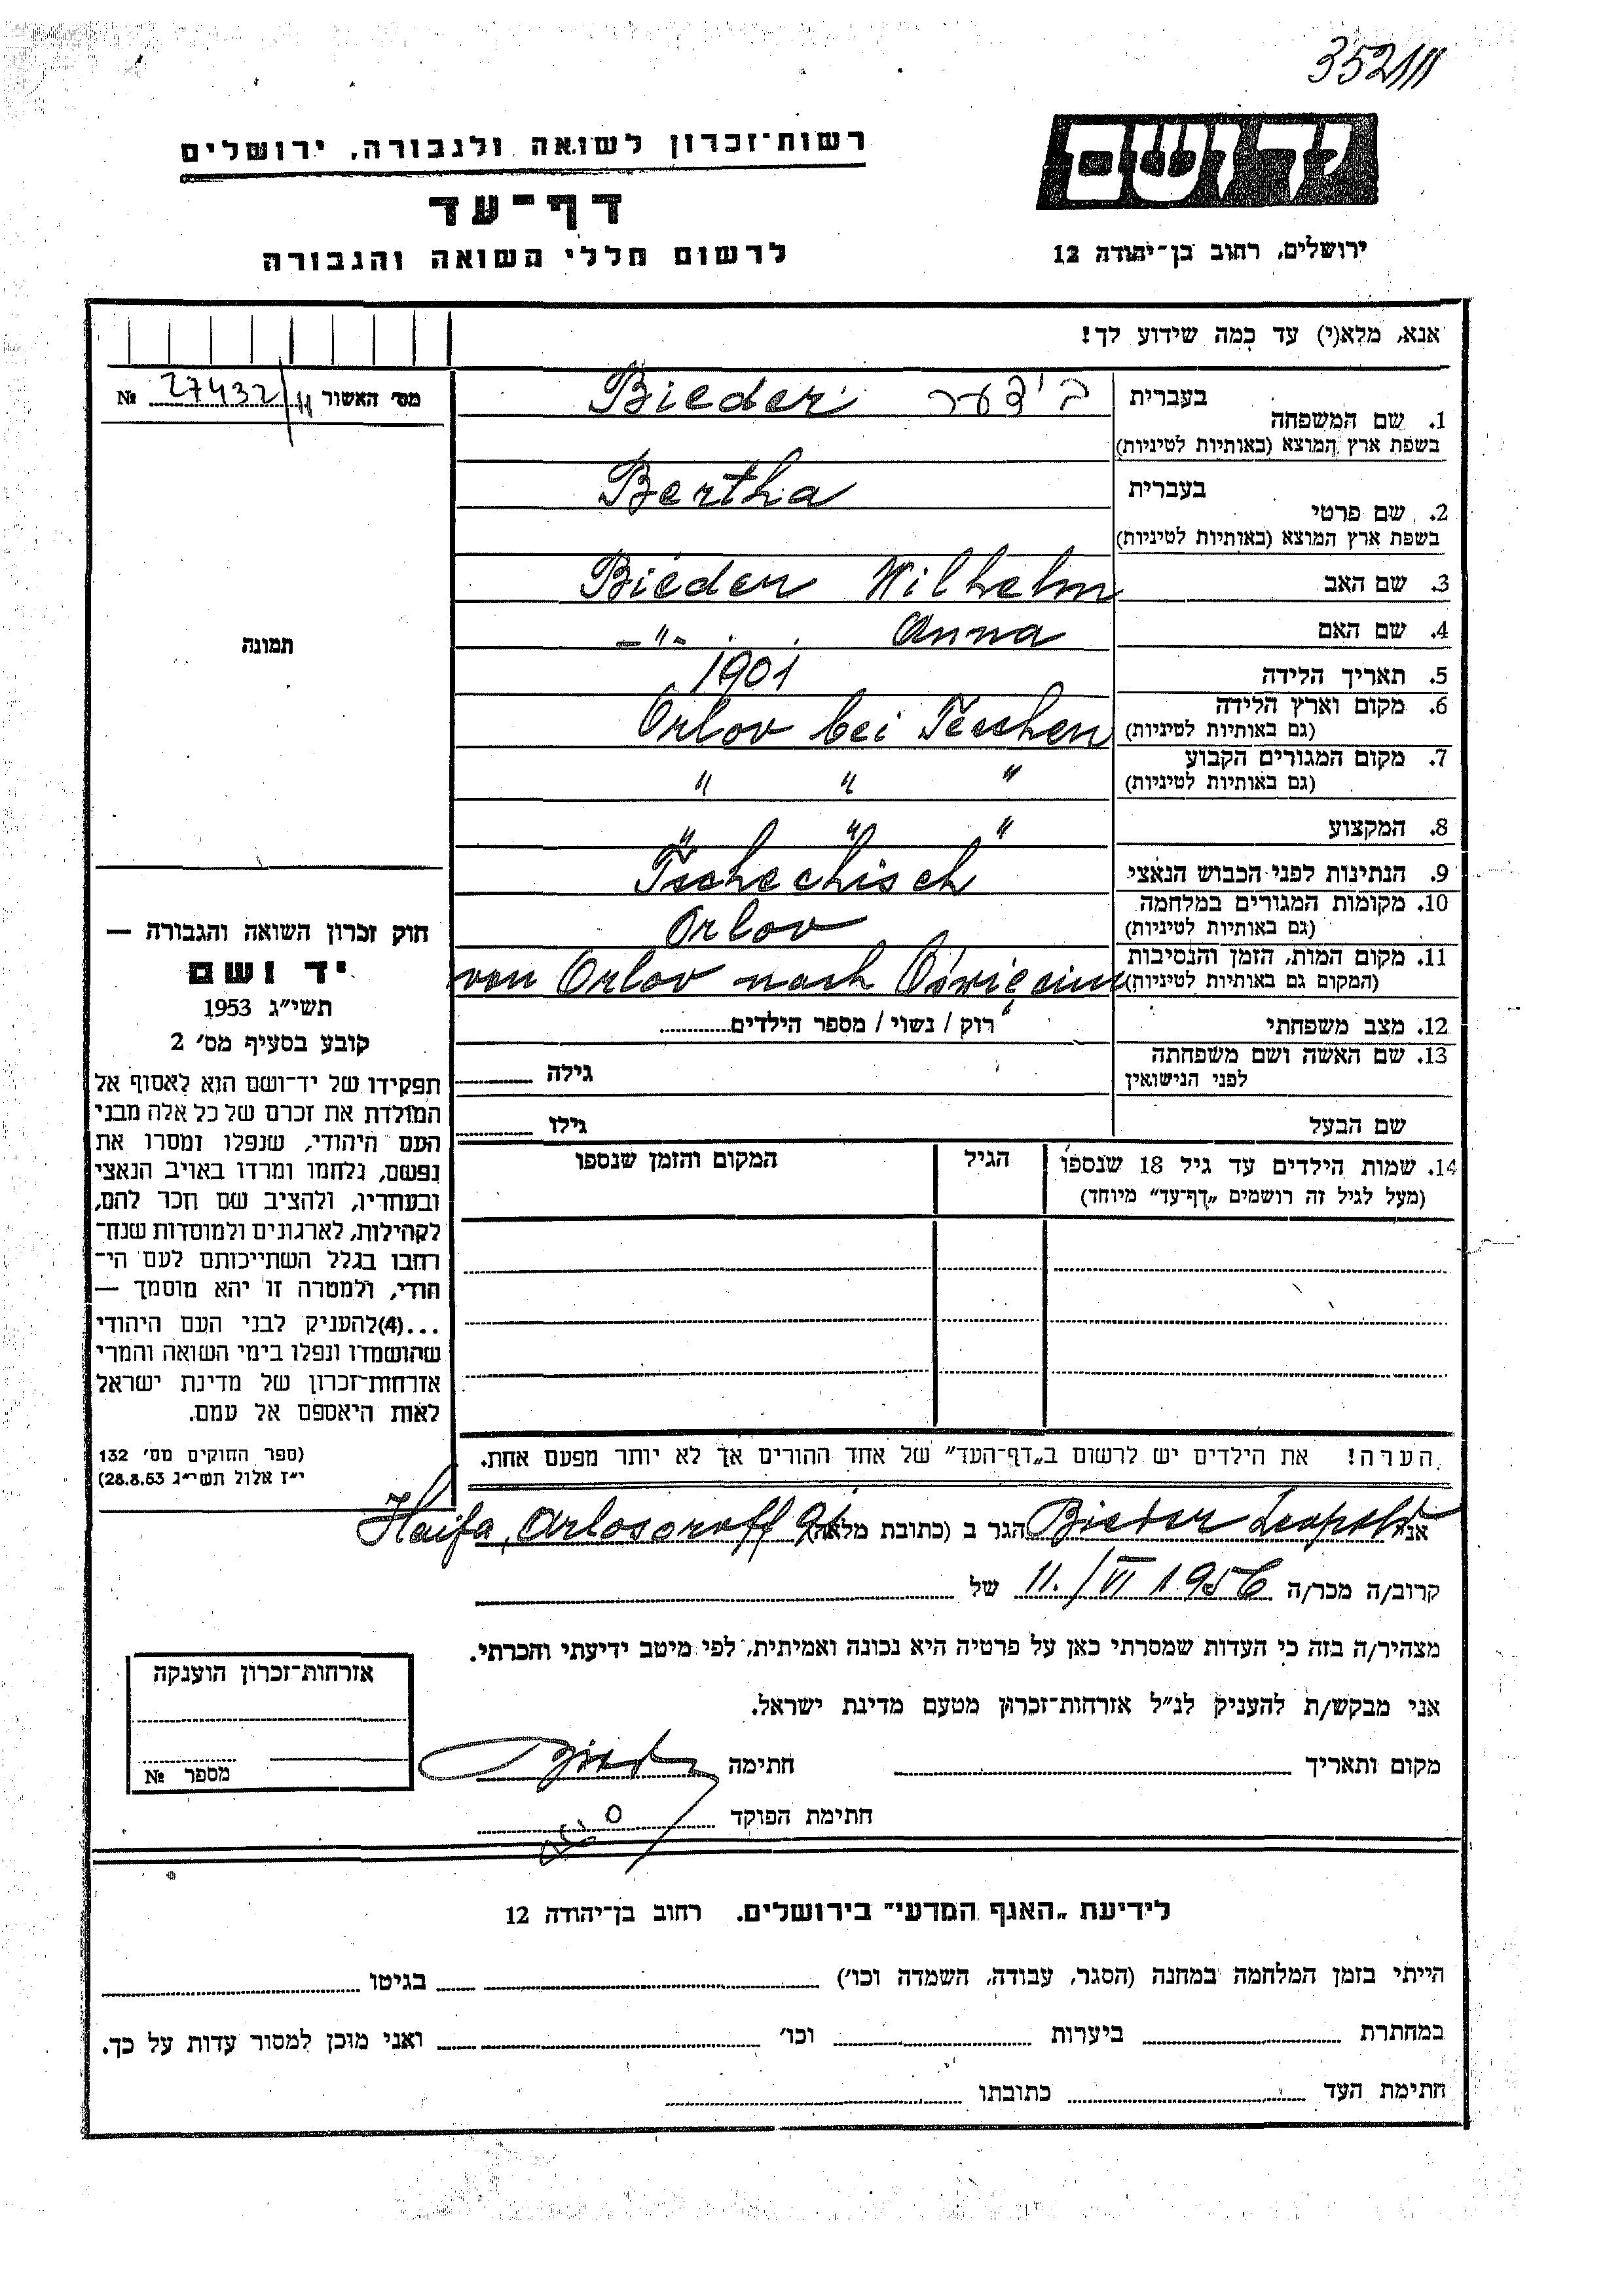 352/11
רשות־זכרון לשואה ולגבורה, ירושלים
דף־עד
לרשום חללי השואה והגבורה
יד ושם
ירושלים, רחוב בן־יהודה 12
אנא, מלא(י) עד כמה שידוע לך!
מס' האשור 27432/11 №
תמונה
1. שם המשפחה בעברית בידער Bieder
בשפת ארץ המוצא (באותיות לטיניות)
2. שם פרטי בעברית Bertha
בשפת ארץ המוצא (באותיות לטיניות)
3. שם האב Bieder Wilhelm
4. שם האם -"- Anna
5. תאריך הלידה 1901
6. מקום וארץ הלידה Orlov bei Teschen
(גם באותיות לטיניות)
7. מקום המגורים הקבוע " " "
(גם באותיות לטיניות)
8. המקצוע " " "
9. הנתינות לפני הכבוש הנאצי Tschechisch
10. מקומות המגורים במלחמה Orlov
(גם באותיות לטיניות)
11. מקום המות, הזמן והנסיבות von Orlov nach Oświęcim
(המקום גם באותיות לטיניות)
12. מצב משפחתי רוק / נשוי / מספר הילדים
13. שם האשה ושם משפחתה
לפני הנישואין גילה
שם הבעל גילו
14. שמות הילדים עד גיל 18 שנספו הגיל המקום והזמן שנספו
(מעל לגיל זה רושמים „דף־עד” מיוחד)
הערה! את הילדים יש לרשום ב„דף־העד” של אחד ההורים אך לא יותר מפעם אחת.
חוק זכרון השואה והגבורה —
יד ושם
תשי״ג 1953
קובע בסעיף מס' 2
תפקידו של יד־ושם הוא לאסוף אל
המולדת את זכרם של כל אלה מבני
העם היהודי, שנפלו ומסרו את
נפשם, נלחמו ומרדו באויב הנאצי
ובעוזריו, ולהציב שם וזכר להם,
לקהילות, לארגונים ולמוסדות שנח־
רבו בגלל השתייכותם לעם הי־
הודי, ולמטרה זו יהא מוסמך —
...(4)להעניק לבני העם היהודי
שהושמדו ונפלו בימי השואה והמרי
אזרחות־זכרון של מדינת ישראל
לאות היאספם אל עמם.
(ספר החוקים מס' 132
י״ז אלול תשי״ג 28.8.53)
אני Bieder Leopold הגר ב (כתובת מלאה) Haifa, Arlosoroff 91
קרוב/ה מכר/ה 11./VI 1956 של
מצהיר/ה בזה כי העדות שמסרתי כאן על פרטיה היא נכונה ואמיתית, לפי מיטב ידיעתי והכרתי.
אני מבקש/ת להעניק לנ״ל אזרחות־זכרון מטעם מדינת ישראל.
מקום ותאריך חתימה
חתימת הפוקד
אזרחות־זכרון הוענקה
מספר №
לידיעת „האגף המדעי” בירושלים. רחוב בן־יהודה 12
הייתי בזמן המלחמה במחנה (הסגר, עבודה, השמדה וכו') בגיטו
במחתרת ביערות וכו' ואני מוכן למסור עדות על כך.
חתימת העד כתובתו